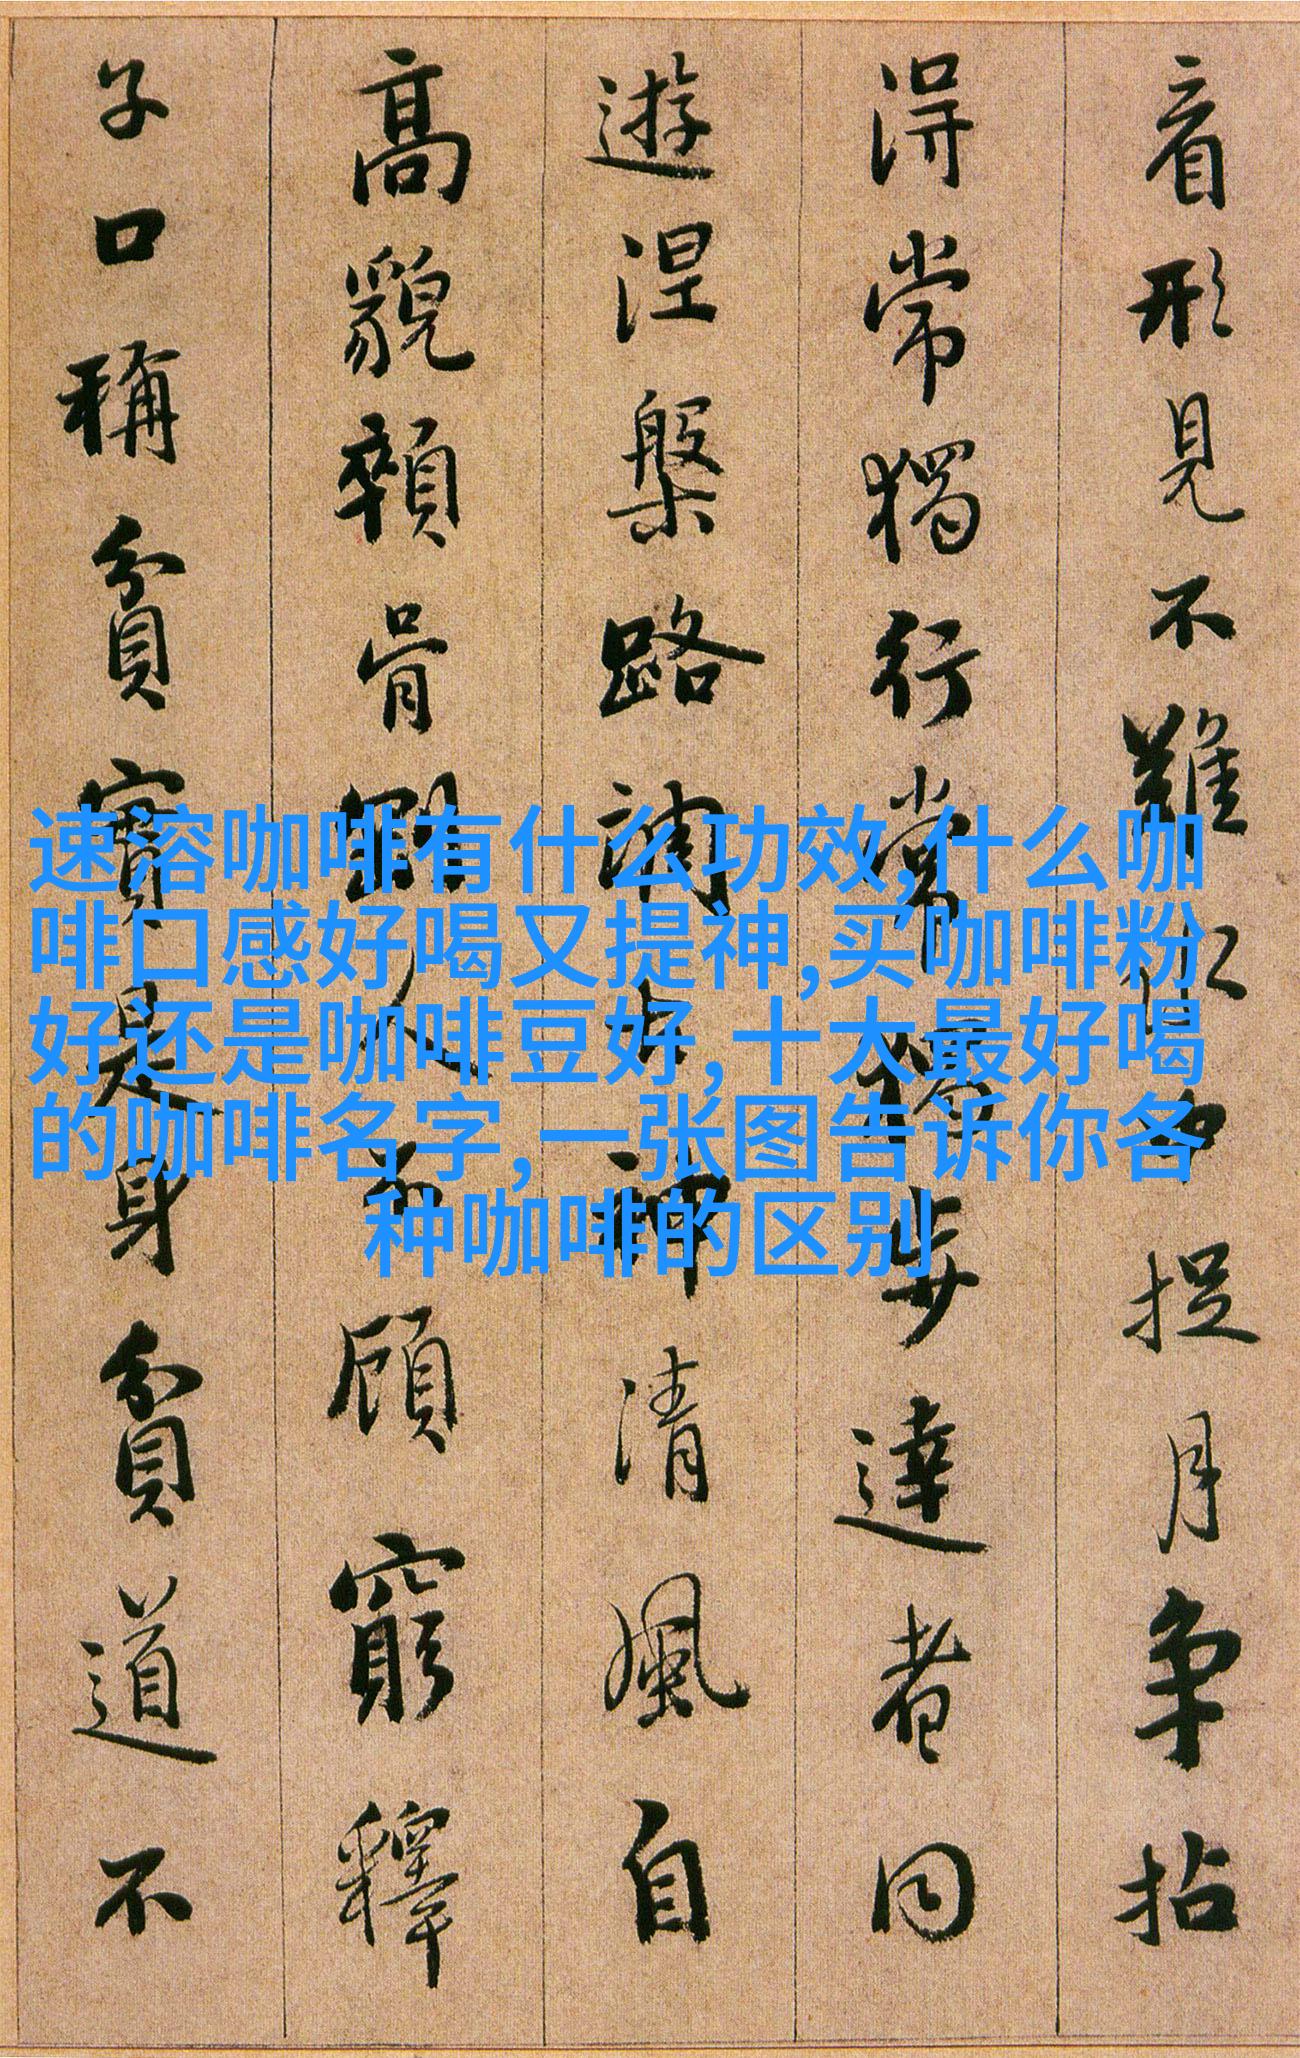 看形見不難水中捉月争拈
得常獨行常獨步達者同
遊涅槃路調古神清風自
高貌顇骨剛人不顧窮釋
子口稱貧實是身貧道不
速溶咖啡有什么功效,什么咖
啡口感好喝又提神,买咖啡粉
好还是咖啡豆好,十大最好喝
的咖啡名字, 一张图告诉你各
种咖啡的区别